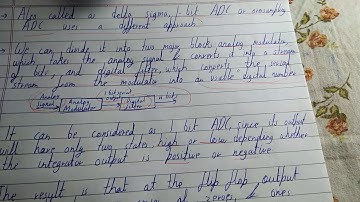 Also called as delta sigma, 1 bit ADC or oversampling
ADC uses a different approach.
We can divide it into two major blocks analog modulator
which, takes the analog signal & converts into a stream
of bits, and digital filter, which converts the serial
stream from the modulator into an usable digital number.
Analog signal → Analog Modulator → 1 bit signal → Digital Filter → n bits
It can be considered as, 1 bit ADC, since its output
will have only two states, high or low depending whether
the integrator output is positive or negative.
The result is that at the flip flop output
of zeroes, & ones